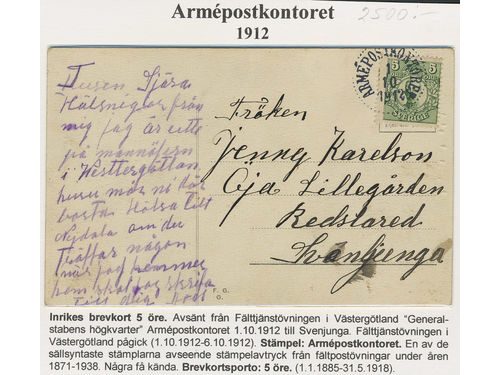 Armépostkontoret
1912
2500:-
ARMÉPOSTKONTORET
1
10
1912
5 5
SVERIGE
Tusen Kjära
Hälsningar från
mig jag är ute
på manövern
i Westtergöttlan
huru mår ni där
borta Hälsa till
om du
träffar någon
när jag kommer
hem skall jag skrifa
till dig
Fröken
Jenny Karelson
Öja Lillegården
Redstared
Svanjeunga
F. G.
G.
Inrikes brevkort 5 öre. Avsänt från Fälttjänstövningen i Västergötland "General-
stabens högkvarter" Armépostkontoret 1.10.1912 till Svenjunga. Fälttjänstövningen i
Västergötland pågick (1.10.1912-6.10.1912). Stämpel: Armépostkontoret. En av de
sällsyntaste stämplarna avseende stämpelavtryck från fältpostövningar under åren
1871-1938. Några få kända. Brevkortsporto: 5 öre. (1.1.1885-31.5.1918).